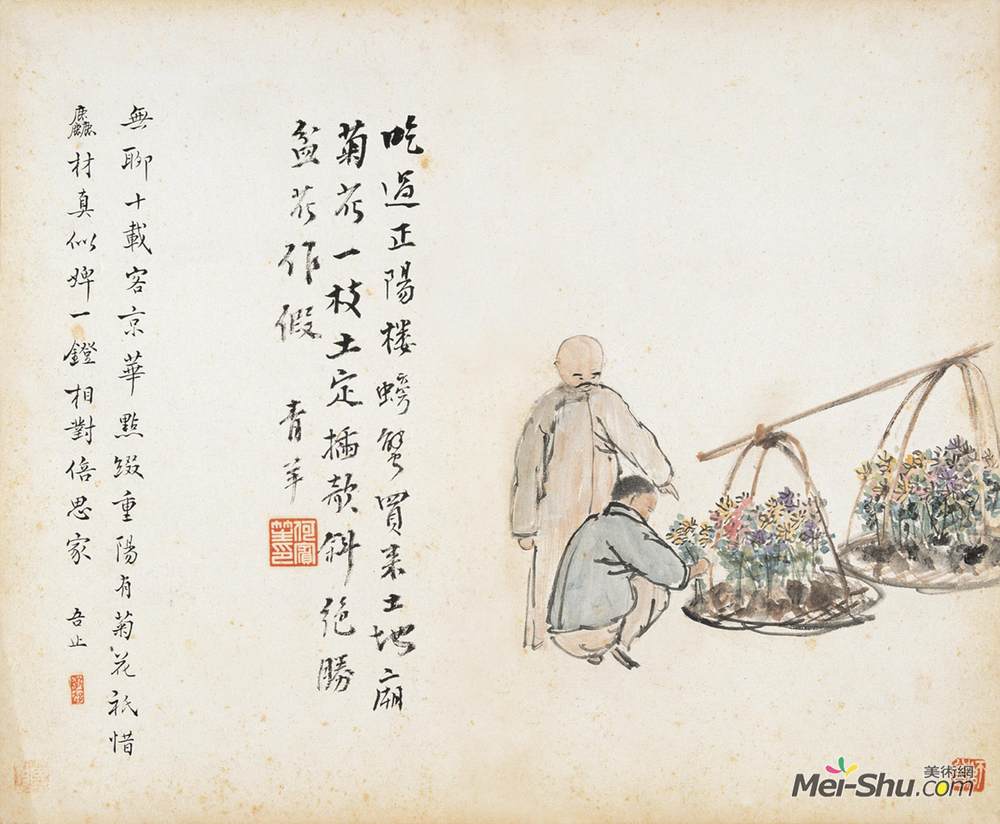 吃過正陽楼螃蟹買来土地廟
菊花一枝土定插欹斜絶勝
盆花作假 青羊
何賓笙印
無聊十載客京華點綴重陽有菊花祇惜
麤材真似婢一鐙相對倍思家 吾止
美術網
Mei-Shu.com